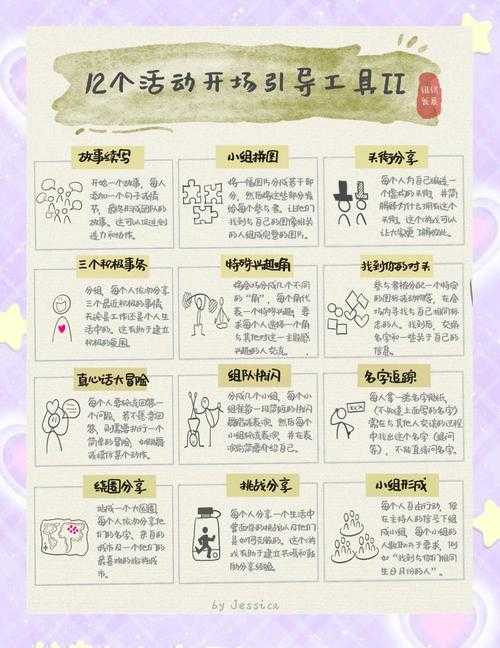 12个活动开场引导工具II
组织
发展
故事续写
开始一个故事，每人
添加一个句子或情
节，最终形成团队的
故事。这可以促进创
造力和协作。
小组拼图
将一幅图片分成若干部
分，然后将这些部分发
给每个参与者，让他们
找到与自己的图像相关
的人组成完整的图片。
头衔分享
每个人为自己编造一
个虚构的头衔，并简
解释为什么拥有这个
头衔。这个游戏可以
让大家更了解彼此。
三个积极事务
分组，每个人依次分享
三个最近积极的事情，
无论是工作还是个人生
活中的。这有助于建立
积极的氛围。
特殊兴趣角
将会场分成几个不同
的"角"，每个角代
表一个特殊兴趣。要
求每个人选择一个角
与其他对这一主题感
兴趣的人交流。
找到你的对头
参与者被分配一个特定
的图标或动物等，在会
场内寻找与自己相同标
志的人。找到后，交换
名字和一些关于自己的
信息。
真心话大冒险
每人要么选择回答一
个问题，若不愿意回
答，则需要执行一个
简单的冒险，如跳舞
或模仿某个动作。
组队快闪
分成几个小组，每个小
组准备一段简短的快闪
舞蹈或表演，然后每个
小组轮流表演，并在表
演后简要介绍自己。
名字追踪
每人拿一张名字贴纸
（不知道上面写的名字）
需在与其他人交谈的过程
中找出这个名字（被问
答），不能直接问名字。
绕圈分享
站成一个大圆圈，
每个人依次分享他
们的名字、来自的
城市及一个他们的
最喜欢的旅游城
市。
挑战分享
每个人分享一个生活中
曾面临的挑战以及他们
是如何克服的。这个游
戏有助于建立共鸣和鼓
励分享经验。
小组形成
每个人自由行动，但
在主持人的信号下组
成小组，每个小组的
人数取决于要求，例
如"找到与你们相同
生日月份的人"。
by Jessica